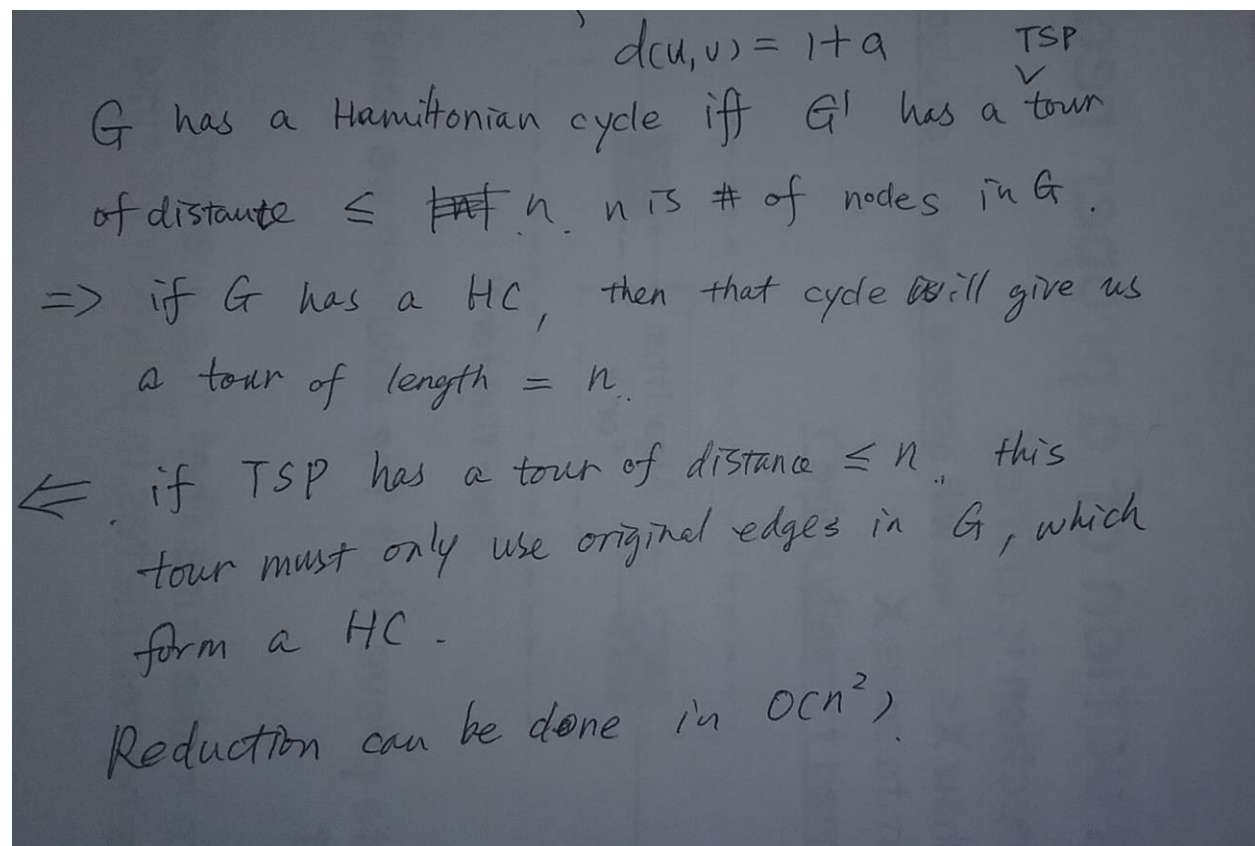 d(u,v) = 1+a TSP
G has a Hamiltonian cycle iff G' has a tour
of distante ≤ n. n is # of nodes in G.
=> if G has a HC, then that cycle will give us
a tour of length = n.
<= if TSP has a tour of distance ≤ n, this
tour must only use original edges in G, which
form a HC.
Reduction can be done in O(n²).